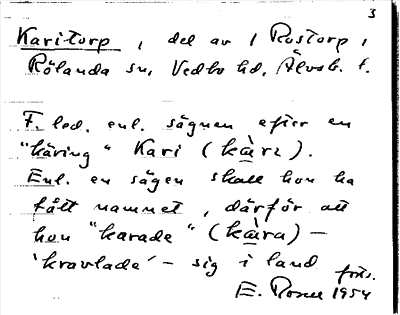 3
Karitorp, del av 1 Rostorp,
Rölanda sn, Vedbo hd, Älvsb. l.
F. led. enl. sägnen efter en
"käring" Kari (kàrɩ).
Enl. en sägen skall hon ha
fått namnet, därför att
hon "karade" (kàra) –
'kravlade' – sig i land
forts.
E. 1954